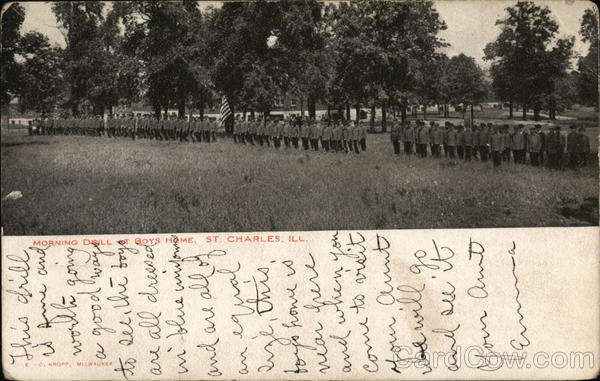 MORNING DRILL AT BOYS HOME, ST. CHARLES, ILL.
This drill
is done and
worth going
a good ways
to see the boys
are all dressed
in blue uniform
and are all of
an equal
size. this
boys home is
near here
and when you
come to visit
your Aunt
will go
and see it
Your Aunt
Emma
E. C. KROPP, MILWAUKEE
CardCow.com